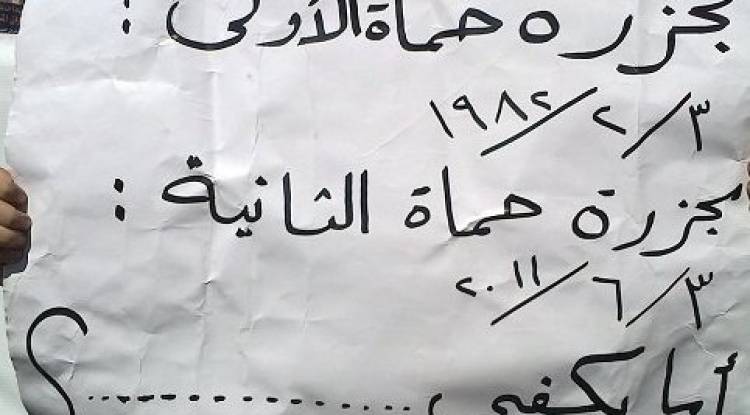 مجزرة حماة الأولى :
٣/٢/١٩٨٢
مجزرة حماة الثانية :
٣/٦/٢٠١١
أما يكفي ..............؟